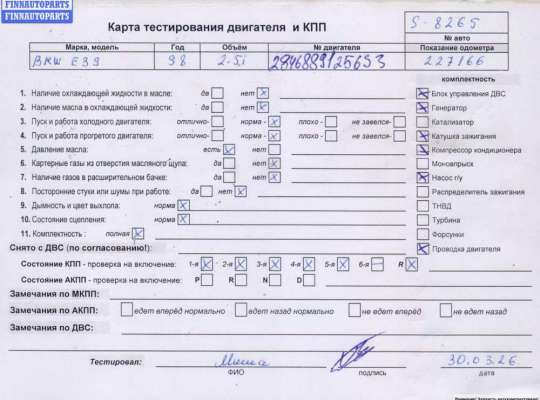 FINNAUTOPARTS
FINNAUTOPARTS
Карта тестирования двигателя и КПП
S-8265
№ авто
Марка, модель Год Объём № двигателя Показание одометра
BKW E39 98 2.5i 227166
комплектность
1. Наличие охлаждающей жидкости в масле: да нет
Блок управления ДВС
2. Наличие масла в охлаждающей жидкости: да нет
Генератор
3. Пуск и работа холодного двигателя: отлично- норма - плохо - не завелся-
Катализатор
4. Пуск и работа прогретого двигателя: отлично- норма - плохо - не завелся-
Катушка зажигания
5. Давление масла: есть нет
Компрессор кондиционера
6. Картерные газы из отверстия масляного щупа: да нет
Моновпрыск
7. Наличие газов в расширительном бачке: да нет
Насос г/у
8. Посторонние стуки или шумы при работе: да нет
Распределитель зажигания
9. Дымность и цвет выхлопа: норма
ТНВД
10. Состояние сцепления: норма
Турбина
11. Комплектность : полная
Форсунки
Снято с ДВС (по согласованию!):
Проводка двигателя
Состояние КПП - проверка на включение: 1-я 2-я 3-я 4-я 5-я 6-я R
Состояние АКПП - проверка на включение: P R N D
Замечания по МКПП:
Замечания по АКПП: едет вперёд нормально едет назад нормально не едет вперёд не едет назад
Замечания по ДВС:
Тестировал: Миша 30.03.26
ФИО подпись дата